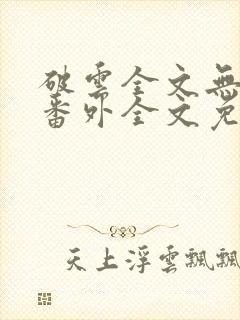 破雲全文無
番外全文免
天上浮雲飄飄